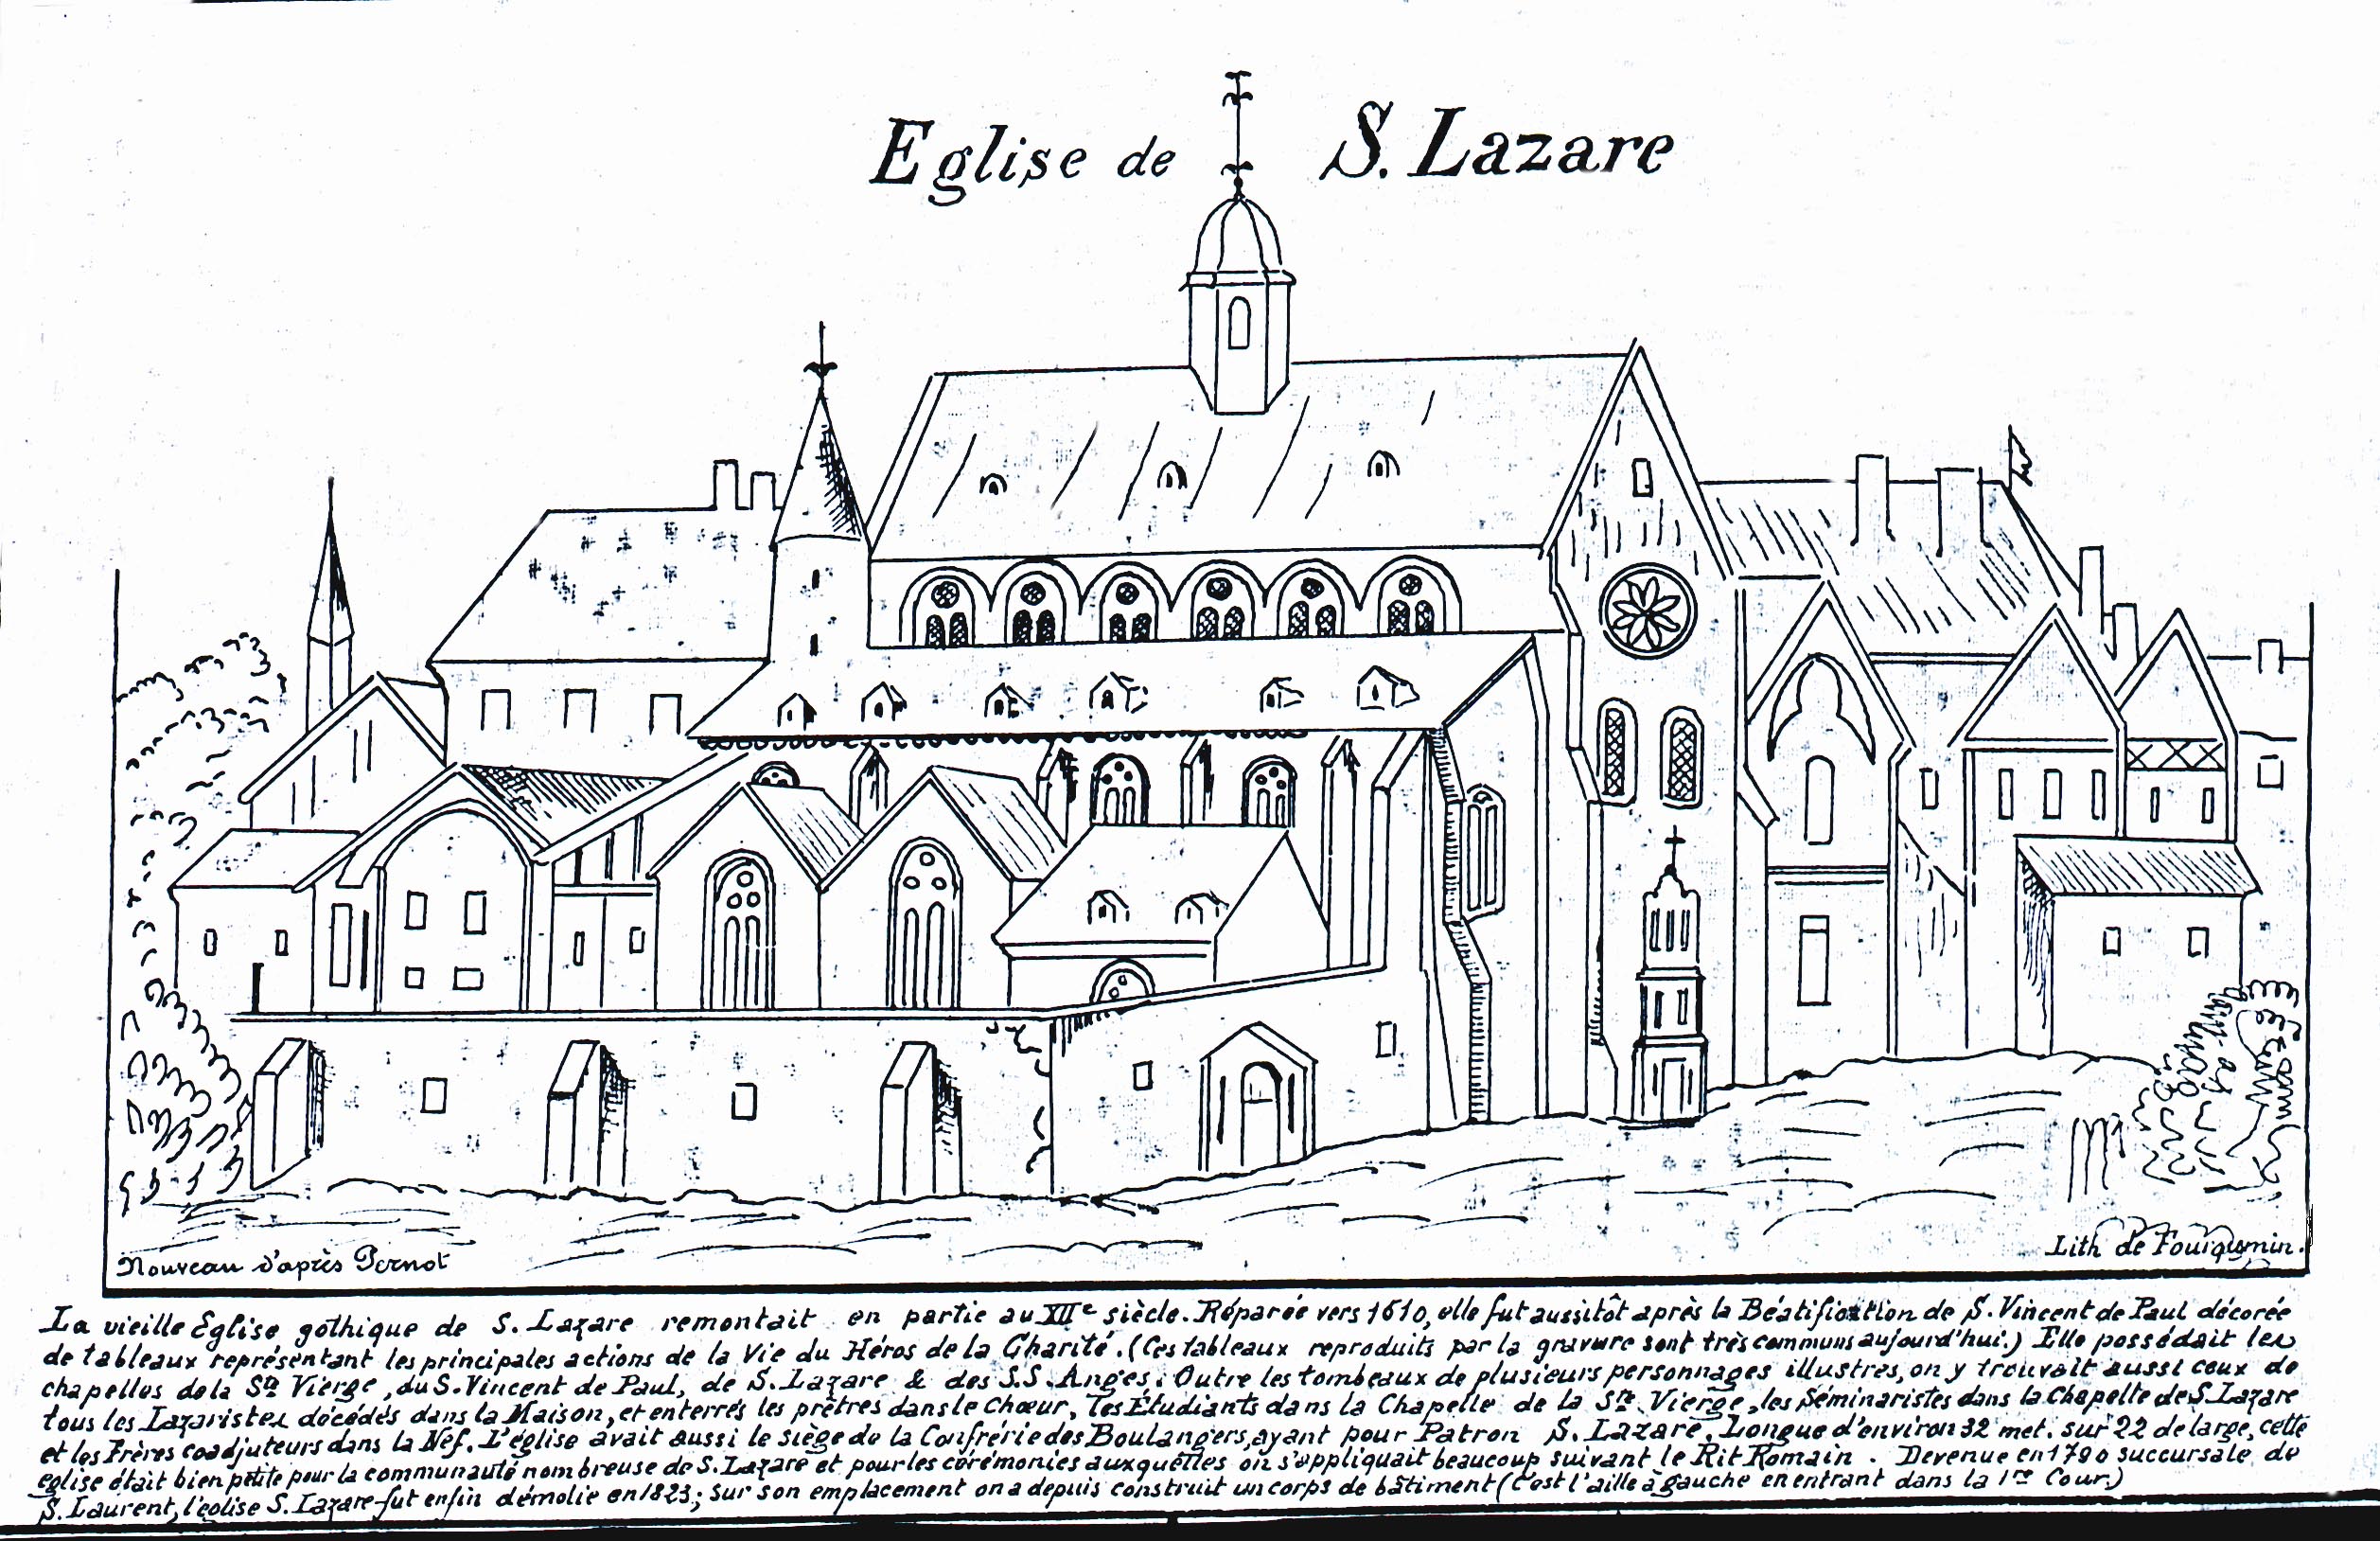 Eglise de S. Lazare
Nouveau d'après Pernot
Lith de Fouiquemin.
La vieille Eglise gothique de S. Lazare remontait en partie au XIIe siècle. Réparée vers 1610, elle fut aussitôt après la Béatification de S. Vincent de Paul décorée
de tableaux représentant les principales actions de la Vie du Héros de la Charité. (Ces tableaux reproduits par la gravure sont très communs aujourd'hui.) Elle possédait les
chapelles de la Ste Vierge, du S. Vincent de Paul, de S. Lazare & des S.S. Anges. Outre les tombeaux de plusieurs personnages illustres, on y trouvait aussi ceux de
tous les Lazaristes décédés dans la Maison, et enterrés les prêtres dans le Chœur, les Étudiants dans la Chapelle de la Ste Vierge, les Séminaristes dans la Chapelle de S. Lazare
et les Frères coadjuteurs dans la Nef. L'église avait aussi le siège de la Confrérie des Boulangers, ayant pour Patron S. Lazare. Longue d'environ 32 met. sur 22 de large, cette
eglise était bien petite pour la communauté nombreuse de S. Lazare et pour les cérémonies auxquelles on s'appliquait beaucoup suivant le Rit Romain. Devenue en 1790 succursale de
S. Laurent, l'église S. Lazare fut enfin démolie en 1823; sur son emplacement on a depuis construit un corps de bâtiment (C'est l'aille à gauche en entrant dans la 1re Cour.)